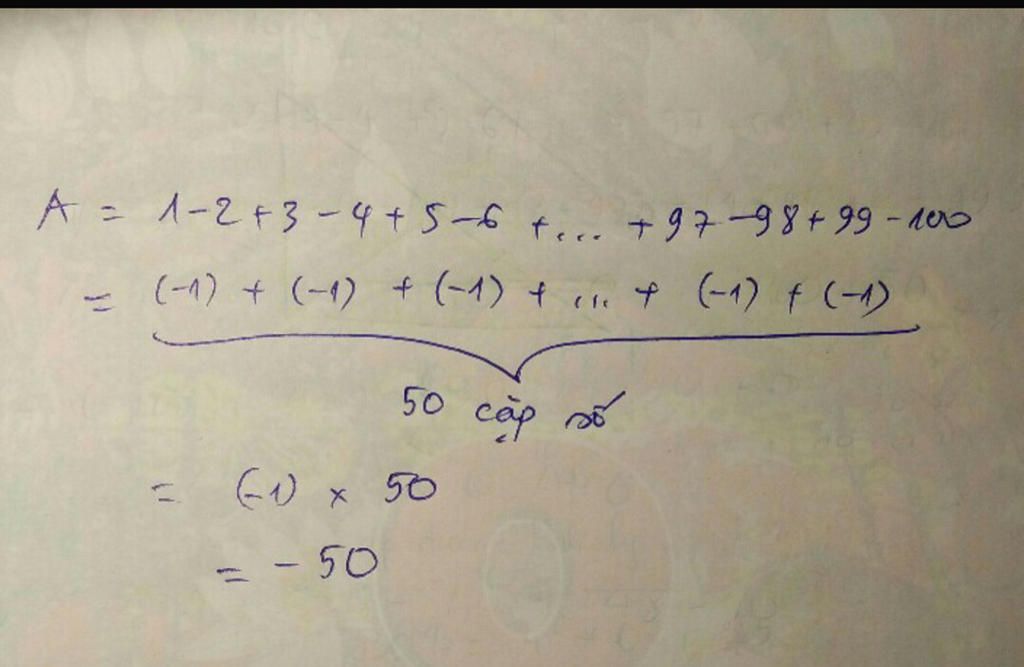 A = 1-2+3-4+5-6 +... +97-98+99-100
= (-1) + (-1) + (-1) + ... + (-1) + (-1)
50 cặp số
= (-1) x 50
= - 50